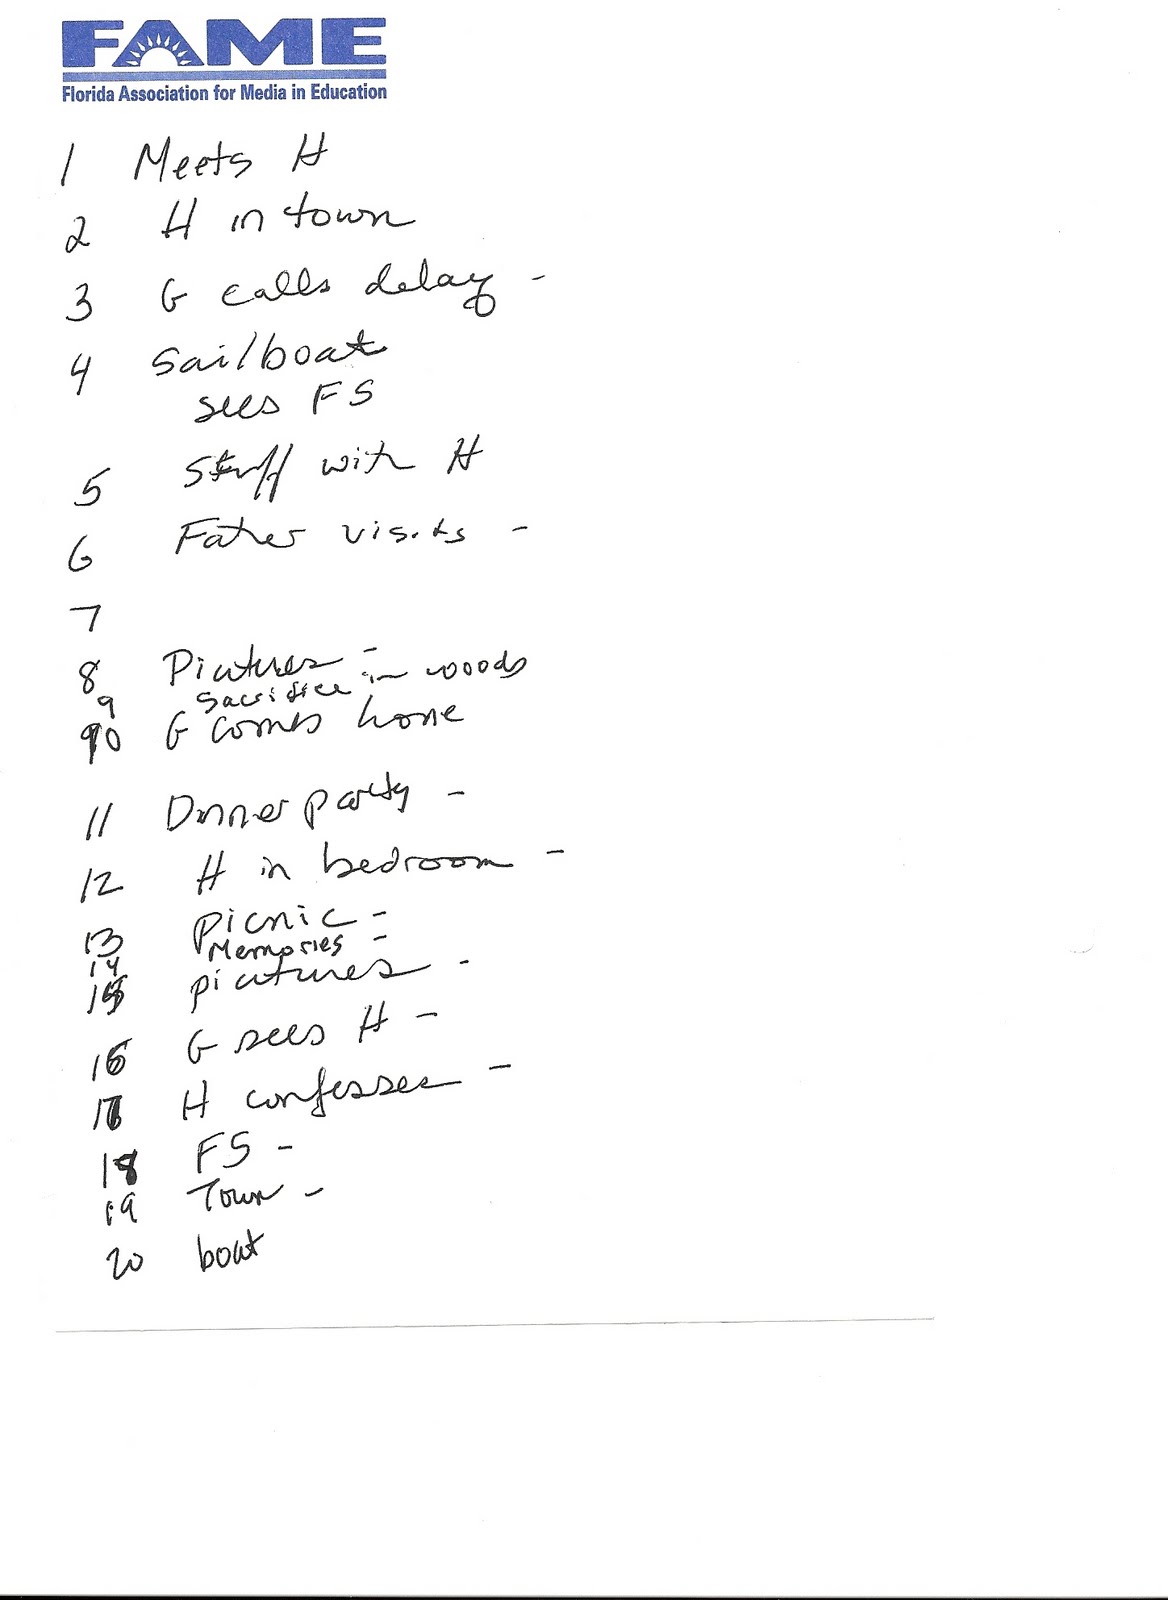 FAME
Florida Association for Media in Education
1 Meets H
2 H in town
3 G calls delay -
4 Sailboat
sees FS
5 Stuff with H
6 Father visits -
7
8 Pictures -
9 Sacrifice in woods
10 G comes home
11 Dinner party -
12 H in bedroom -
13 Picnic -
14 Memories -
15 pictures -
16 G sees H -
17 H confesses -
18 FS -
19 Town -
20 boat